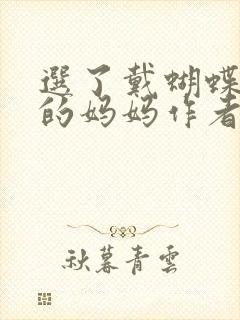 選了戴蝴蝶
的妈妈作者
秋暮青雲